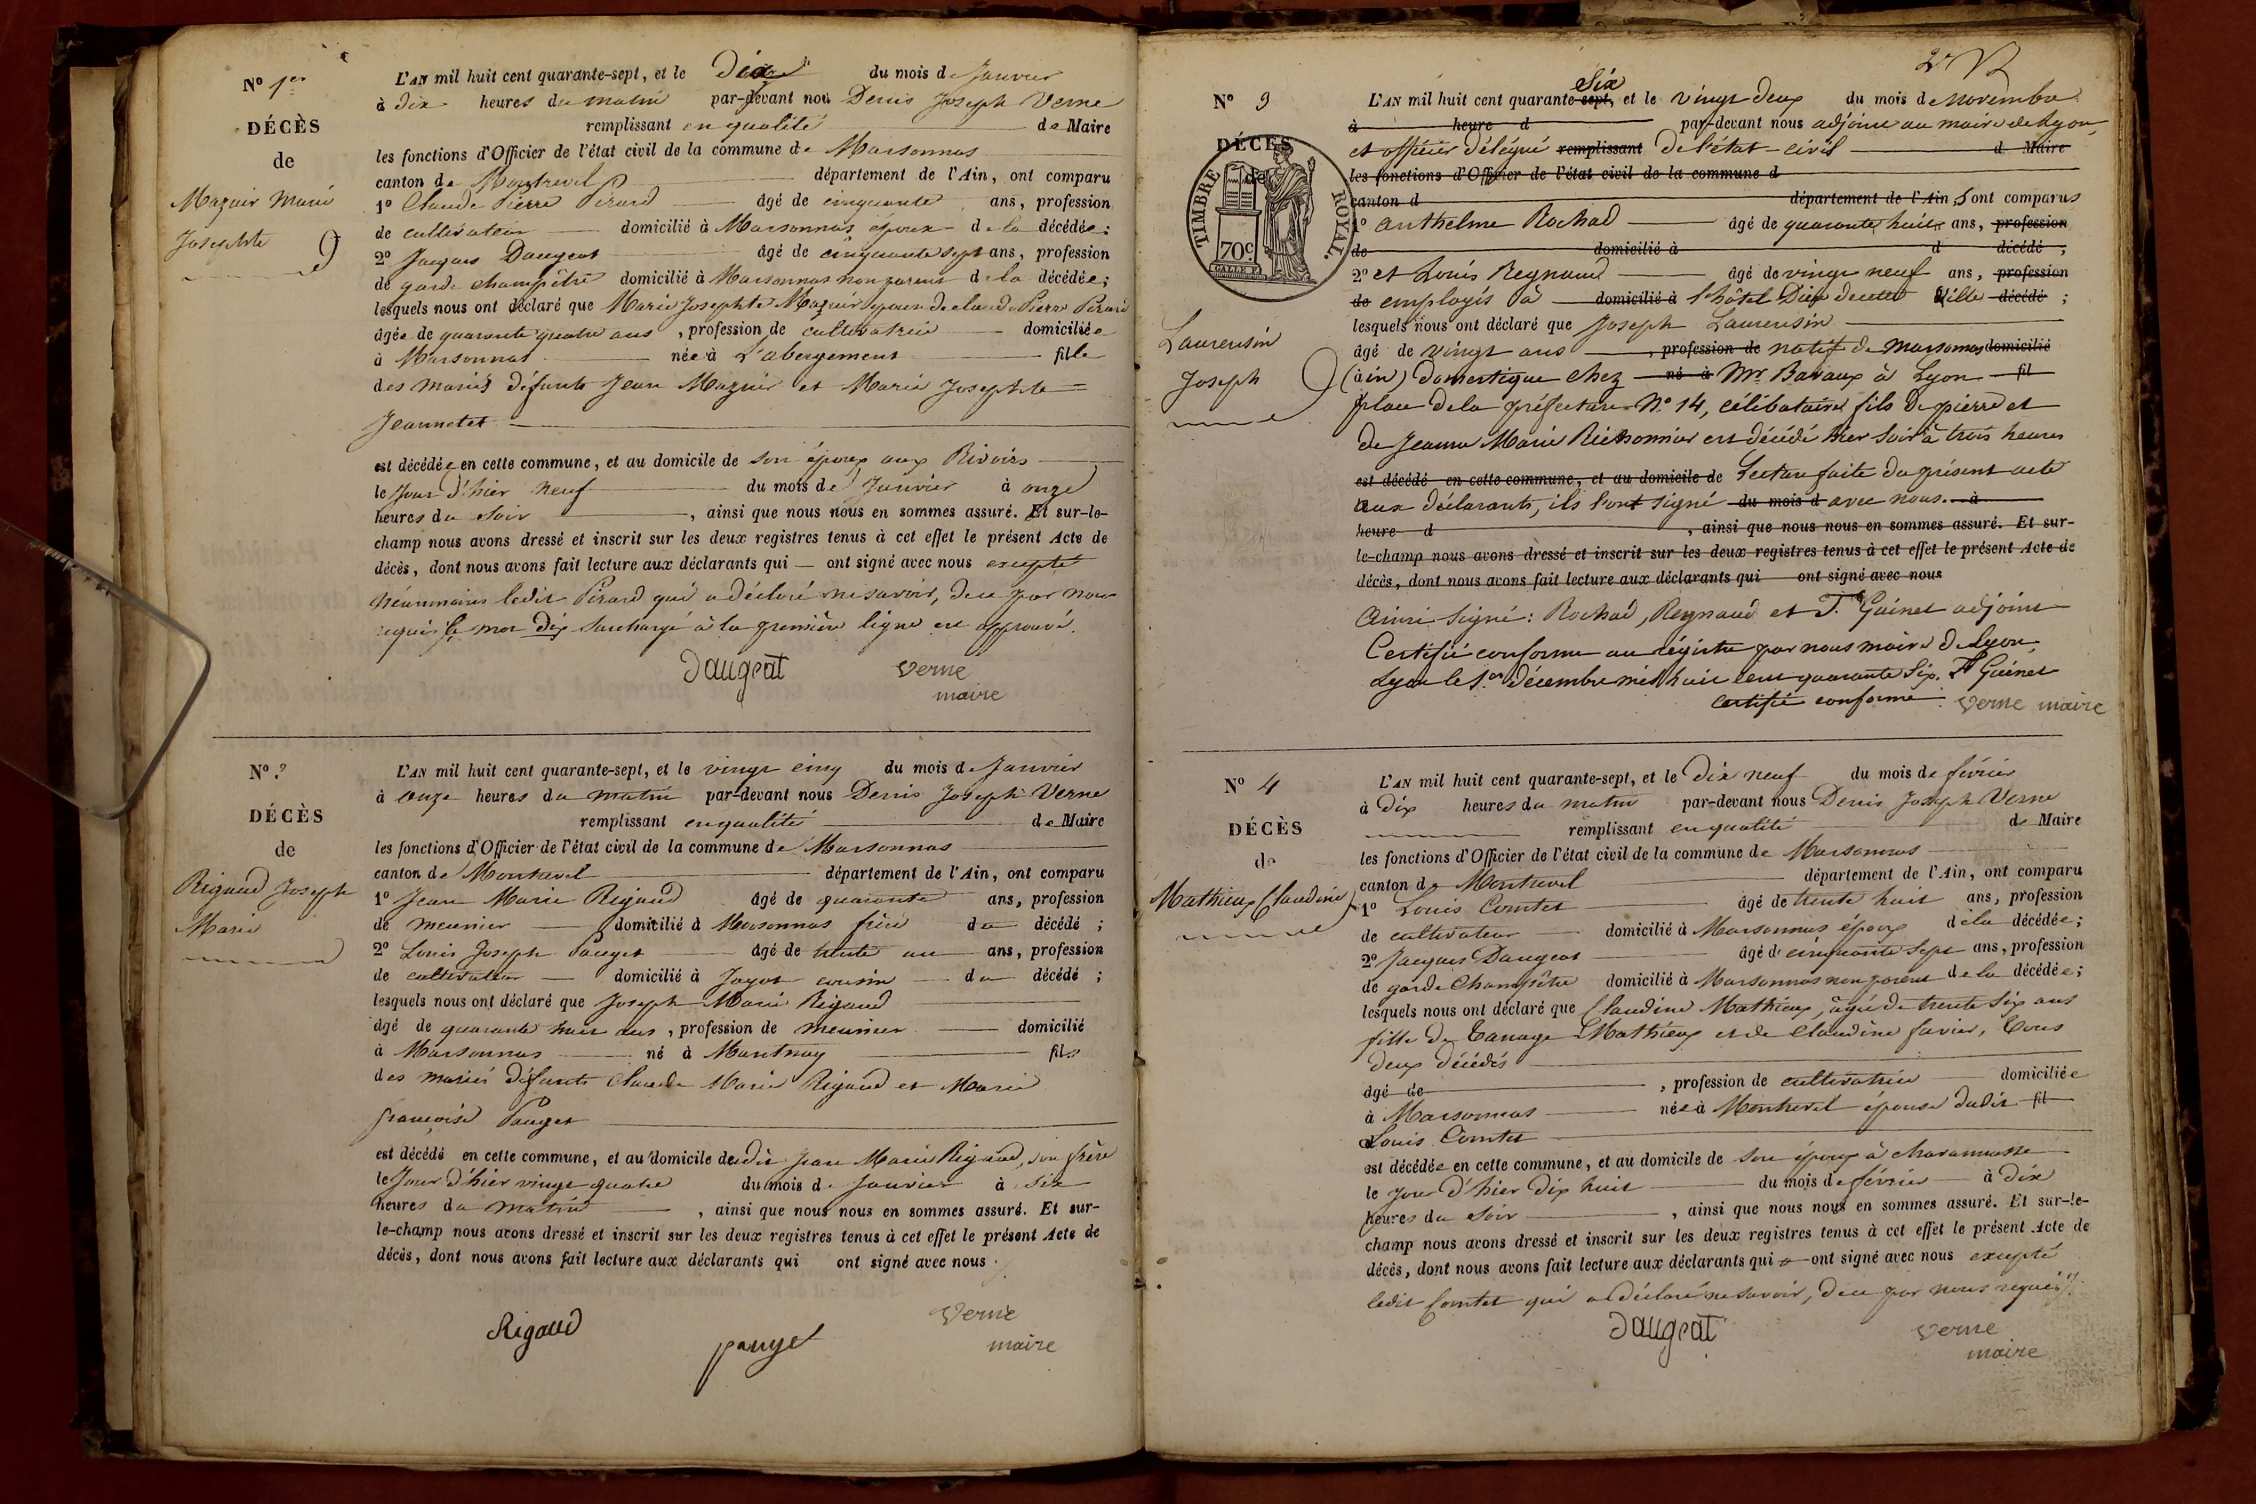 N° 1er
DÉCÈS
de
Mazuir Marie
Josephte
L'AN mil huit cent quarante-sept, et le Dix du mois de Janvier
à dix heures du matin par-devant nous Denis Joseph Verne
remplissant en qualité de Maire
les fonctions d'Officier de l'état civil de la commune de Marsonnas
canton de Montrevel département de l'Ain, ont comparu
1° Claude Pierre Pirard âgé de cinquante ans, profession
de cultivateur domicilié à Marsonnas époux de la décédée;
2° Jacques Daugeat âgé de cinquante sept ans, profession
de garde champêtre domicilié à Marsonnas non parent de la décédée;
lesquels nous ont déclaré que Marie Josephte Mazuir épouse de claude Pierre Pirard
âgée de quarante quatre ans, profession de cultivatrice domiciliée
à Marsonnas née à L'abergement fille
des mariés défunts Jean Mazuir et Marie Josephte
Jeannetet
est décédée en cette commune, et au domicile de son époux aux Rivoirs
le Jour d'hier neuf du mois de Janvier à onze
heures du Soir, ainsi que nous nous en sommes assuré. Et sur-le-
champ nous avons dressé et inscrit sur les deux registres tenus à cet effet le présent Acte de
décès, dont nous avons fait lecture aux déclarants qui — ont signé avec nous excepté
néanmoins ledit Pirard qui a déclaré ne savoir, de ce par nous
requis le mot dix surchargé à la première ligne est approuvé.
Daugeat Verne
maire
N° 2
DÉCÈS
de
Rigaud Joseph
Marie
L'AN mil huit cent quarante-sept, et le vingt cinq du mois de Janvier
à onze heures du matin par-devant nous Denis Joseph Verne
remplissant en qualité de Maire
les fonctions d'Officier de l'état civil de la commune de Marsonnas
canton de Montrevel département de l'Ain, ont comparu
1° Jean Marie Rigaud âgé de quarante ans, profession
de meunier domicilié à Marsonnas frère du décédé ;
2° Louis Joseph Pauget âgé de trente un ans, profession
de cultivateur domicilié à Jayat cousin du décédé ;
lesquels nous ont déclaré que Joseph Marie Rigaud
âgé de quarante huit ans, profession de meunier domicilié
à Marsonnas né à Mantnay fils
des mariés défunts Claude Marie Rigaud et Marie
françoise Pauget
est décédé en cette commune, et au domicile dudit Jean Marie Rigaud, son frère
le Jour d'hier vingt quatre du mois de Janvier à six
heures du matin, ainsi que nous nous en sommes assuré. Et sur-
le-champ nous avons dressé et inscrit sur les deux registres tenus à cet effet le présent Acte de
décès, dont nous avons fait lecture aux déclarants qui ont signé avec nous.
Rigaud pauget Verne
maire
N° 3
DÉCÈS
de
TIMBRE ROYAL.
70c.
Laurensin
Joseph
L'AN mil huit cent quarante-sept, Six et le vingt deux du mois de Novembre
à heure d par-devant nous adjoint au maire de Lyon,
et officier délégué remplissant De l'état-civil d Maire
les fonctions d'Officier de l'état civil de la commune d
canton d département de l'Ain, Sont comparus
1° anthelme Rochad âgé de quarante huit ans, profession
de domicilié à d décédé ;
2° et Louis Reynaud âgé de vingt neuf ans, profession
de employés à domicilié à l'hôtel Dieu de cette Ville décédé ;
lesquels nous ont déclaré que Joseph Laurensin
âgé de vingt ans, profession de natif de Marsonnas domicilié
(ain) domestique chez né à Mr Bavaux à Lyon fil
place de la préfecture N° 14, célibataire fils de pierre et
de Jeanne Marie Richonnier est décédé hier soir à trois heures
est décédé en cette commune, et au domicile de Lecture faite du présent acte
aux déclarants, ils l'ont signé du mois d avec nous. à
heure d, ainsi que nous nous en sommes assuré. Et sur-
le-champ nous avons dressé et inscrit sur les deux registres tenus à cet effet le présent Acte de
décès, dont nous avons fait lecture aux déclarants qui ont signé avec nous
ainsi signé : Rochad, Reynaud et F. Guinet adjoint
Certifié conforme au régistre par nous maire de Lyon,
Lyon le 1.er décembre mil huit cent quarante Six. F. Guinet
certifié conforme. Verne maire
N° 4
DÉCÈS
de
Mathieux Claudine
L'AN mil huit cent quarante-sept, et le Dix neuf du mois de février
à Dix heures du matin par-devant nous Denis Joseph Verne
remplissant en qualité de Maire
les fonctions d'Officier de l'état civil de la commune de Marsonnas
canton de Montrevel département de l'Ain, ont comparu
1° Louis Comtet âgé de trente huit ans, profession
de cultivateur domicilié à Marsonnas époux de la décédée;
2° Jacques Daugeat âgé de cinquante Sept ans, profession
de garde Champêtre domicilié à Marsonnas non parent de la décédée;
lesquels nous ont déclaré que Claudine Mathieux, âgée de trente Six ans
fille de Mathieux et de Claudine favier, Tous
deux décédés
âgé de, profession de cultivatrice domiciliée
à Marsonnas née à Montrevel épouse dudit fil
Louis Comtet
est décédée en cette commune, et au domicile de son époux à charamasse
le Jour d'hier Dix huit du mois de février à dix
heures du Soir, ainsi que nous nous en sommes assuré. Et sur-le-
champ nous avons dressé et inscrit sur les deux registres tenus à cet effet le présent Acte de
décès, dont nous avons fait lecture aux déclarants qui ont signé avec nous excepté
ledit Comtet qui a déclaré ne savoir, de ce par nous requis.
Daugeat Verne
maire